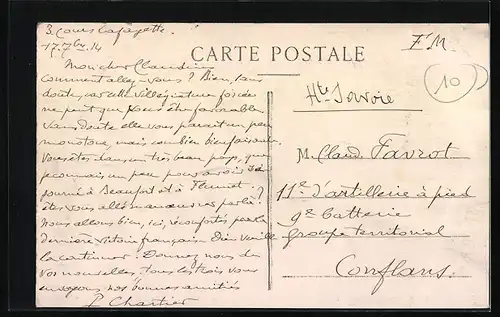 3. Cours Lafayette.
17. 7bre 14
CARTE POSTALE
F.M.
10
Mon cher Claudius
comment allez-vous ? Bien, sans
doute, car cette villégiature forcée
ne peut que vous être favorable
sans doute elle vous parait un peu
monotone, mais combien bienfaisante.
Vous êtes dans un très beau pays, que
je connais un peu pour avoir
séjourné à Beaufort et à Flumet.
êtes vous allé manœuvrer par là ?
Nous allons bien, ici, réconfortés par la
dernière victoire française. Dieu veuille
la continuer. Donnez nous de
vos nouvelles, tous les trois vous
envoyons nos bonnes amitiés
P. Chartier
Hte Savoie
M. Claud. Favrot
11e d'artillerie à pied
9e batterie
groupe territorial
Conflans.